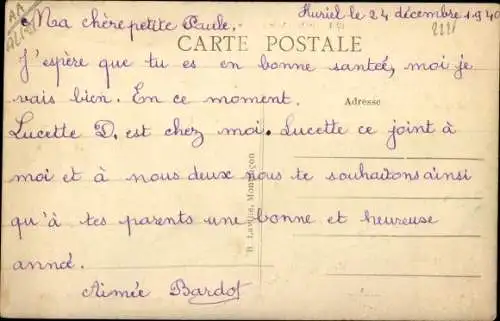 Huriel le 24 décembre 1940
Ma chère petite Paule.
CARTE POSTALE
J'espère que tu es en bonne santeé, moi je
vais bien. En ce moment.
Adresse
Lucette D. est chez moi. Lucette ce joint à
moi et à nous deux nous te souhaitons ainsi
qu'à tes parents une bonne et heureuse
anneé.
Aimée Bardot